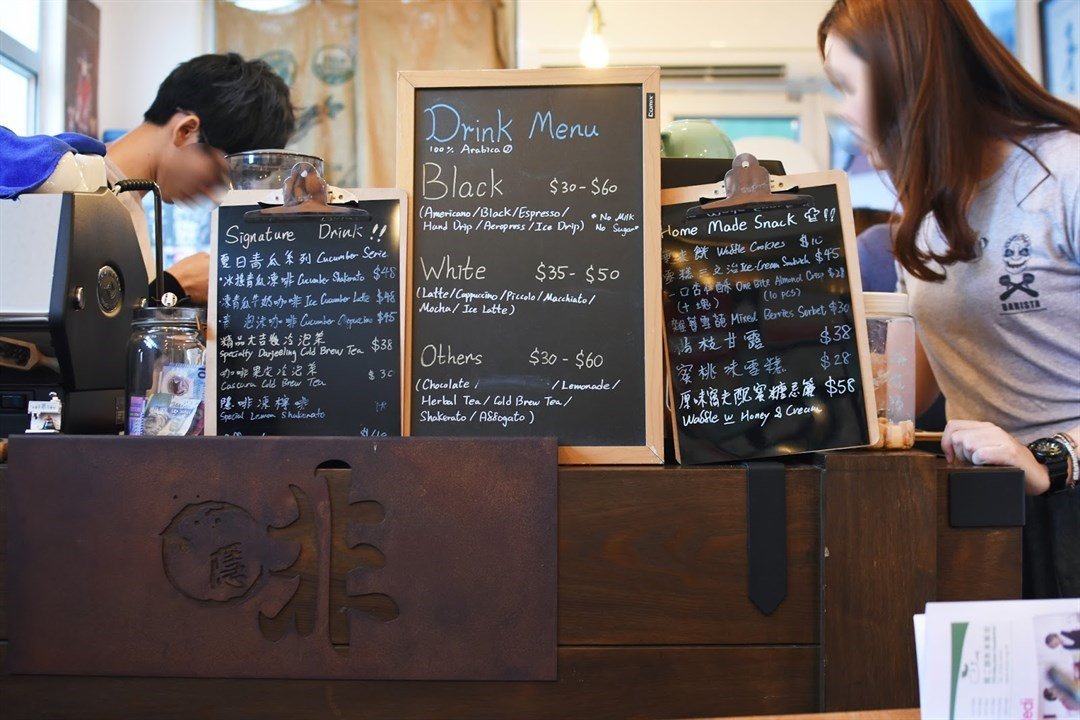 Drink Menu
100% Arabica
Black $30-$60
(Americano/Black/Espresso/
Hand Drip/Aeropress/Ice Drip)
* No Milk
No Sugar*
White $35-$50
(Latte/Cappuccino/Piccolo/Macchiato/
Mocha/Ice Latte)
Others $30-$60
(Chocolate /Lemonade/
Herbal Tea/Cold Brew Tea/
Shakerato/Affogato)
Signature Drink!!
夏日青瓜系列 Cucumber Serie
冰搖青瓜凍啡 Cucumber Shakerato $48
凍青瓜牛奶咖啡 Ice Cucumber Latte $48
泡沫咖啡 Cucumber $45
精品大吉嶺冷泡茶
Specialty Darjeeling Cold Brew Tea $38
咖啡果皮冷泡茶
Cascara Cold Brew Tea
隱啡凍檸啡
Special Lemon Shakerato
Home Made Snack !!
餅 Waffle Cookies
三文治 Ice-Cream Sandwich $45
一口杏仁酥 One Bite Almond Crisp $28
(10 pcs)
雜莓雪葩 Mixed Berries Sorbet $30
楊枝甘露 $38
蜜桃味雪糕 $28
原味窩夫配蜜糖忌廉 $58
Waffle w Honey & Cream
隱
啡
BARISTA
comix